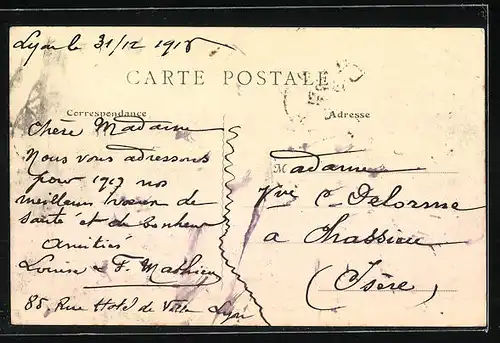 Lyon le 31/12 1916
CARTE POSTALE
Correspondance
Adresse
Chère Madame
Nous vous adressons
pour 1917 nos
meilleurs voeux de
santé et de bonheur
Amitiés
Louise & F. Mathieu
85, Rue Hotel de Ville Lyon
Madame
Vve Delorme
a Chassieu
(Isère)